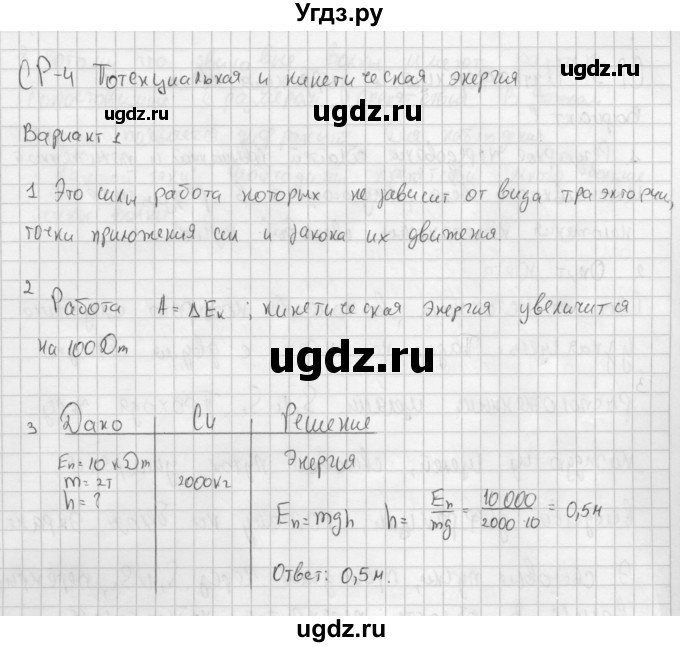 Угдз.ру
СР-4 Потенциальная и кинетическая энергия
ugdz.ru ugdz.ru
Вариант 1
ugdz.ru
1 Это силы работа которых не зависит от вида траэктории,
точки приложения сил и закона их движения
2 Работа A = ΔEк ; кинетическая энергия увеличится
на 100 Дж
ugdz.ru
3 Дано Си Решение
Eп = 10 кДж Энергия
m = 2т 2000кг
h = ?
ugdz.ru ugdz.ru
Eп = mgh h = Eп/mg = 10 000/2000·10 = 0,5м
Ответ: 0,5м.
ugdz.ru